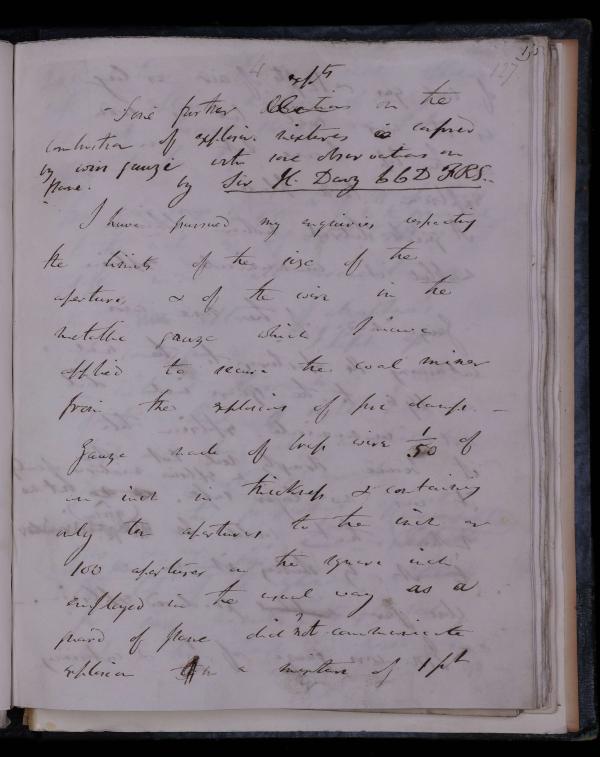 4 expts 135
127
Some further on the
combustion of explosive mixtures confined
by wire gauze with some observations on
flame. by Sir H. Davy LLD FRS.
I have pursued my enquiries respecting
the limits of the size of the
apertures & of the wire in the
metallic gauze which I have
applied to secure the coal miner
from the explosions of fire damp. —
Gauze made of brass wire 1/50 of
an inch in thickness & containing
only ten apertures to the inch or
100 apertures in the square inch
employed in the usual way as a
guard of flame did not communicate
explosion in a mixture of 1 pt